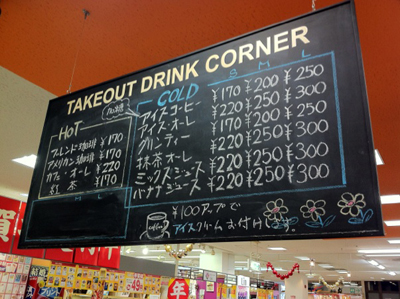 TAKEOUT DRINK CORNER
HOT
ブレンド珈琲 ¥170
アメリカン珈琲 ¥170
カフェ オーレ ¥220
紅 茶 ¥170
COLD
S M L
アイスコーヒー ¥170 ¥200 ¥250
アイス・オーレ ¥220 ¥250 ¥300
グリンティー ¥170 ¥200 ¥250
抹茶オーレ ¥220 ¥250 ¥300
ミックスジュース ¥220 ¥250 ¥300
バナナジュース ¥220 ¥250 ¥300
¥100アップで
アイスクリームお付けします。
賀
年
49